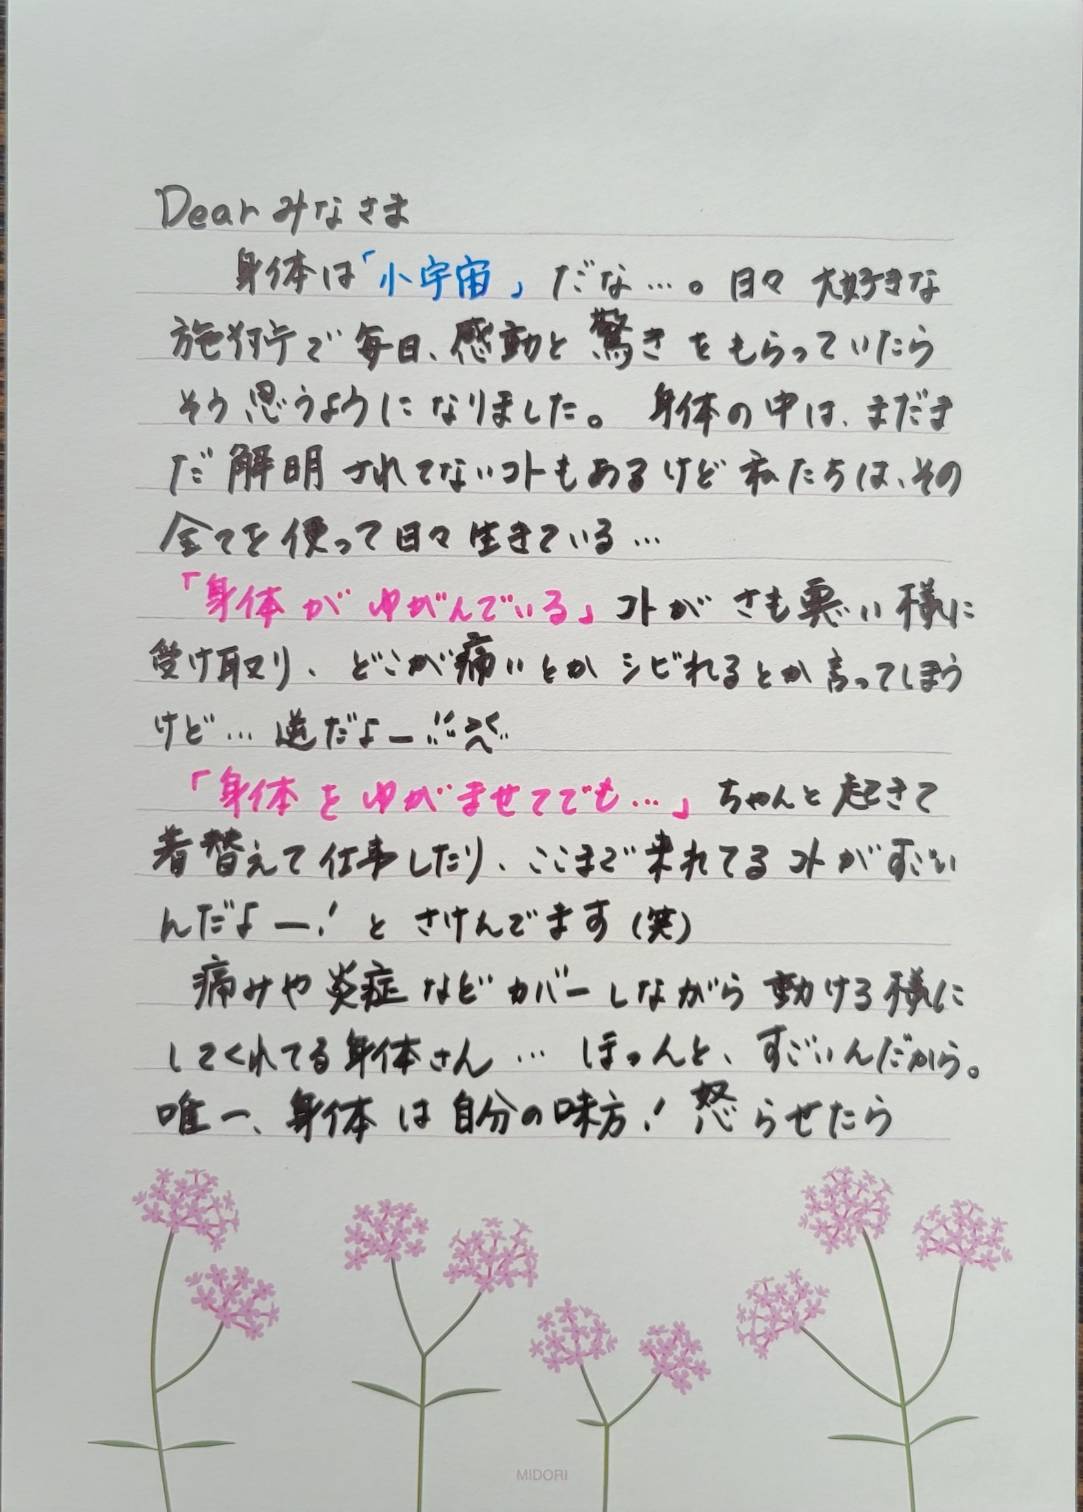 Dear みなさま
身体は「小宇宙」だな…。日々 大好きな
施術庁で毎日、感動と驚きをもらっていたら
そう思うようになりました。 身体の中は、まだま
だ解明されてないコトもあるけど 私たちは、その
全てを使って日々生きている…
「身体がゆがんでいる」コトが さも悪い様に
受け取り、どこが痛いとか シビれるとか言ってしまう
けど… 逆だよー
「身体をゆがませてでも…」ちゃんと起きて
着替えて仕事したり、ここまで来れてるコトがすごい
んだよー!と さけんでます(笑)
痛みや炎症などカバーしながら動ける様に
してくれてる身体さん… ほっんと、すごいんだから。
唯一、身体は自分の味方! 怒らせたら
MIDORI